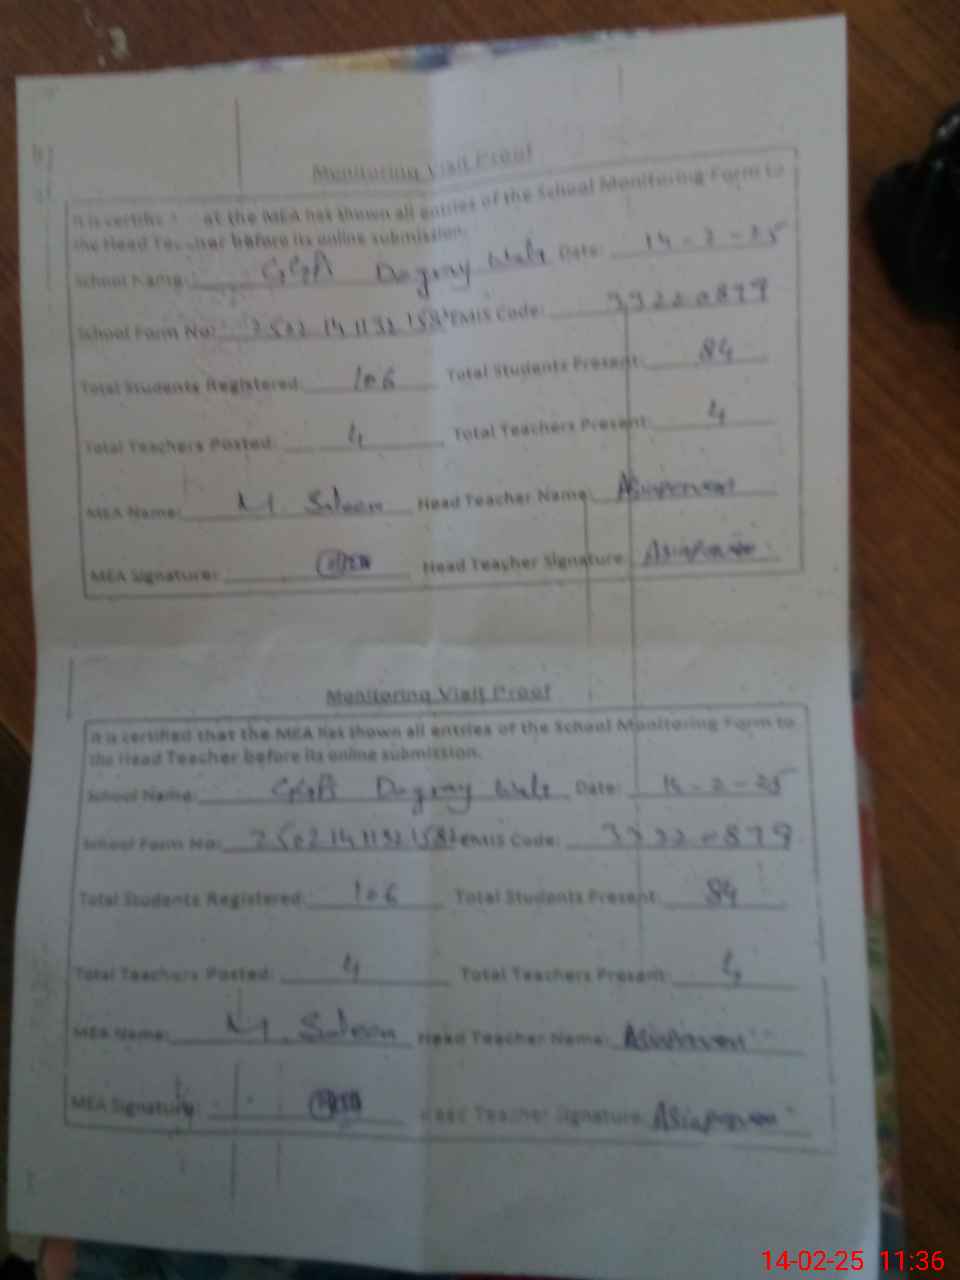 Monitoring Visit Proof
It is certified that the MEA has shown all entries of the School Monitoring Form to
the Head Teacher before its online submission.
School Name: Dogray Wala Date: 14-2-25
School Form No: 2502 14 1132 158 EMIS Code: 33220879
Total Students Registered: 106 Total Students Present: 84
Total Teachers Posted: 4 Total Teachers Present: 4
MEA Name: M. Saleem Head Teacher Name: Asiaperveen
MEA Signature: Head Teacher Signature: Asiaperveen
Monitoring Visit Proof
It is certified that the MEA has shown all entries of the School Monitoring Form to
the Head Teacher before its online submission.
School Name: Dogray Wala Date: 14-2-25
School Form No: 2502 14 1132 158 EMIS Code: 33220879
Total Students Registered: 106 Total Students Present: 84
Total Teachers Posted: 4 Total Teachers Present: 4
MEA Name: M. Saleem Head Teacher Name: Asiaperveen
MEA Signature: Head Teacher Signature: Asiaperveen
14-02-25 11:36